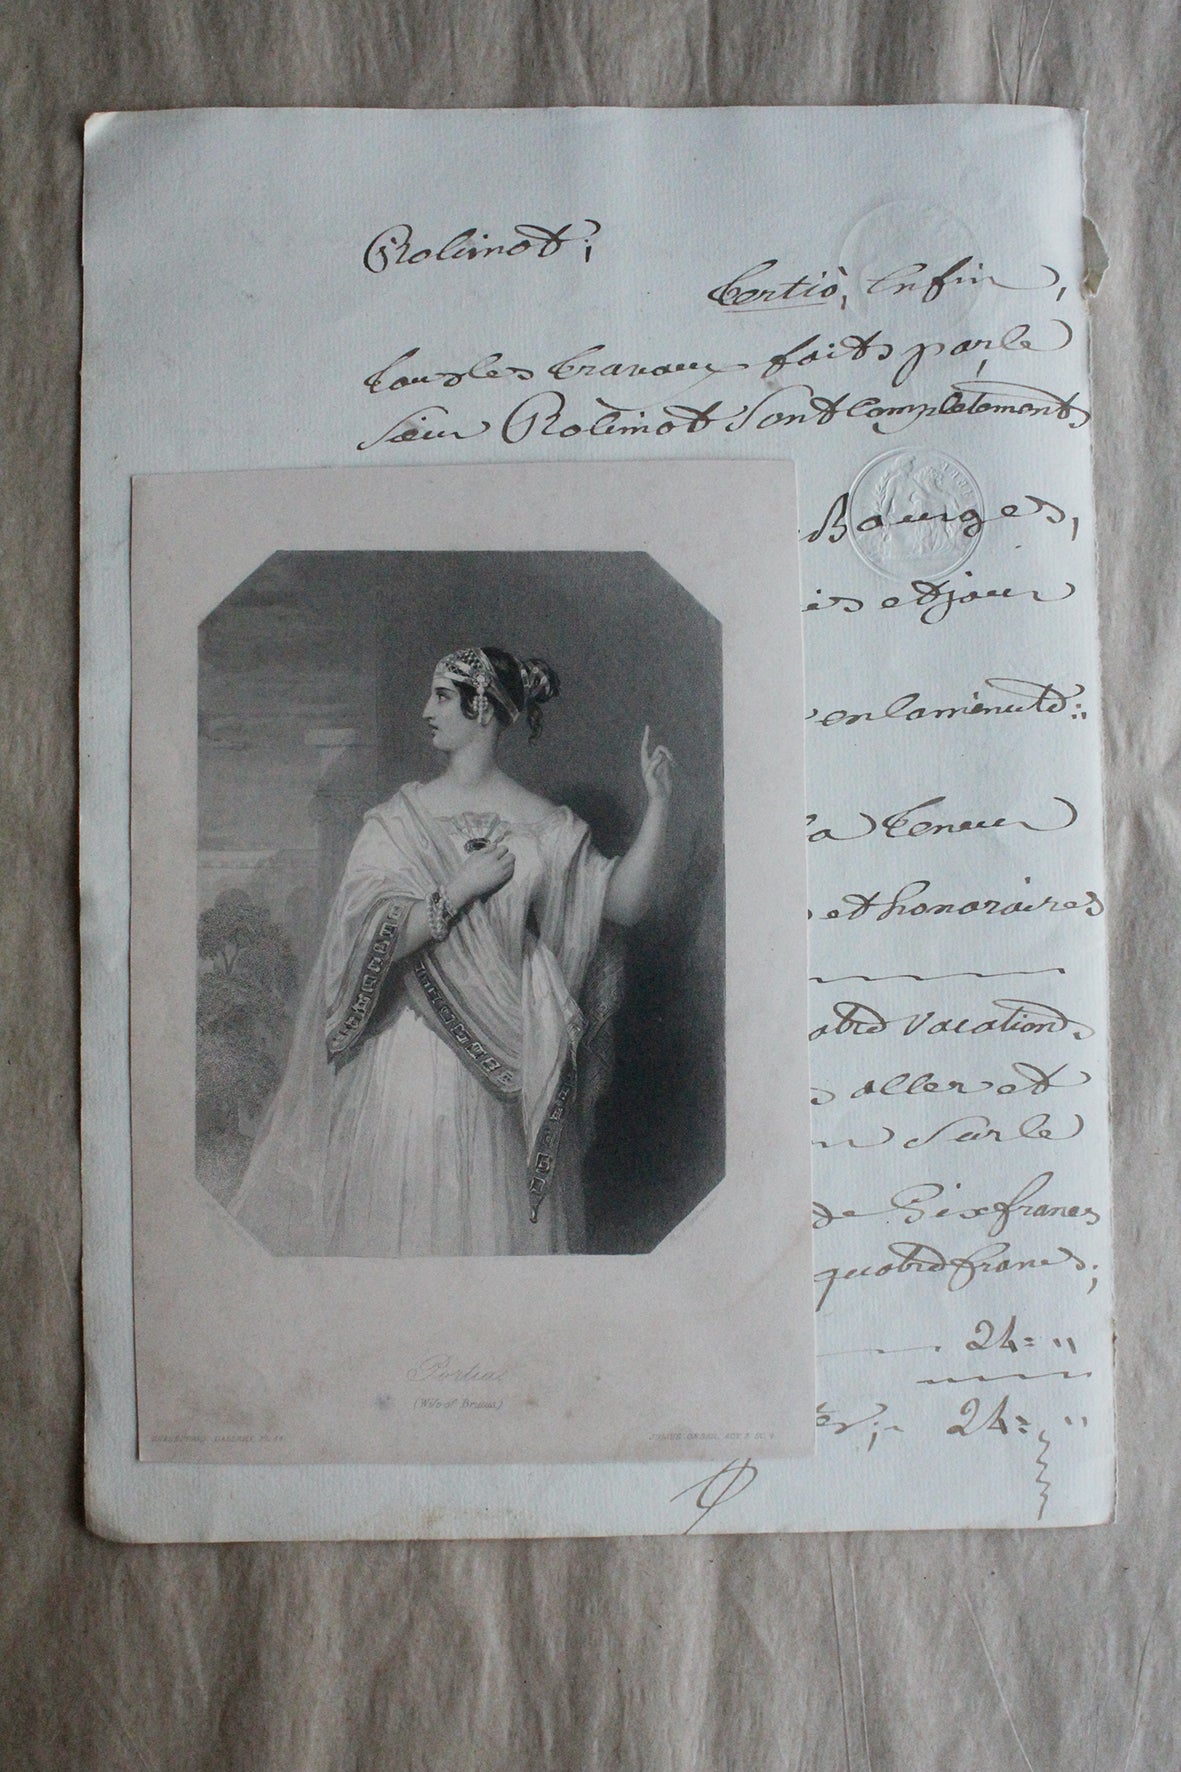 Rolimot;
Tertiò, Enfin,
tous les travaux faits par le
Sieur Rolimot Sont Complètement
Bourges,
et jour
en la minute:
la teneur
et honoraires
vacations
aller et
Sur le
de Six francs
quatre francs;
24= "
24= "
Portia
(Wife of Brutus)
GALLERY, PL.
JULIUS CÆSAR, ACT 2, SC.